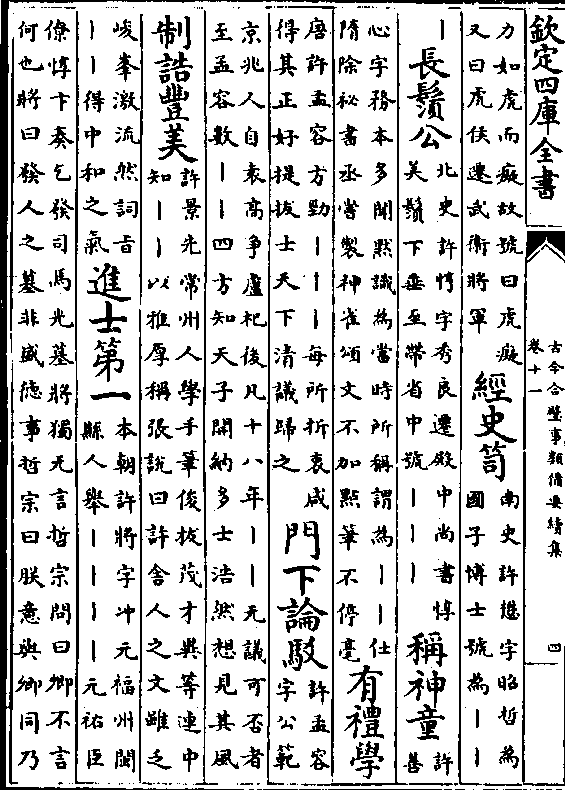 欽定四庫全書
古今合璧事類備要續集
卷十一
四
力如虎而癡故號曰虎癡
又曰虎侯遷武衛將軍
經史笥
南史許懋字昭哲為
國子博士號為丨丨
丨
長鬚公
北史許惇字秀良遷殿中尚書惇
美鬚下垂至帶省中號丨丨丨
稱神童
許
善
心字務本多聞默識為當時所稱謂為丨丨仕
隋除秘書丞嘗製神雀頌文不加點筆不停毫
有禮學
唐許孟容方勁丨丨丨每所折衷咸
得其正好提拔士天下清議歸之
門下論駁
許孟容
字公範
京兆人自袁高爭盧杞後凡十八年丨丨无議可否者
至孟容數丨丨四方知天子開納多士浩然想見其風
制誥豐美
許景先常州人學手筆俊拔茂才異等連中
知丨丨以雅厚稱張說曰許舍人之文雖乏
峻峯激流然詞旨
丨丨得中和之氣
進士第一
本朝許將字冲元福州閩
縣人舉丨丨丨丨元祐臣
僚惇卞奏乞發司馬光墓將獨无言哲宗問曰卿不言
何也將曰發人之墓非盛德事哲宗曰朕意與卿同乃